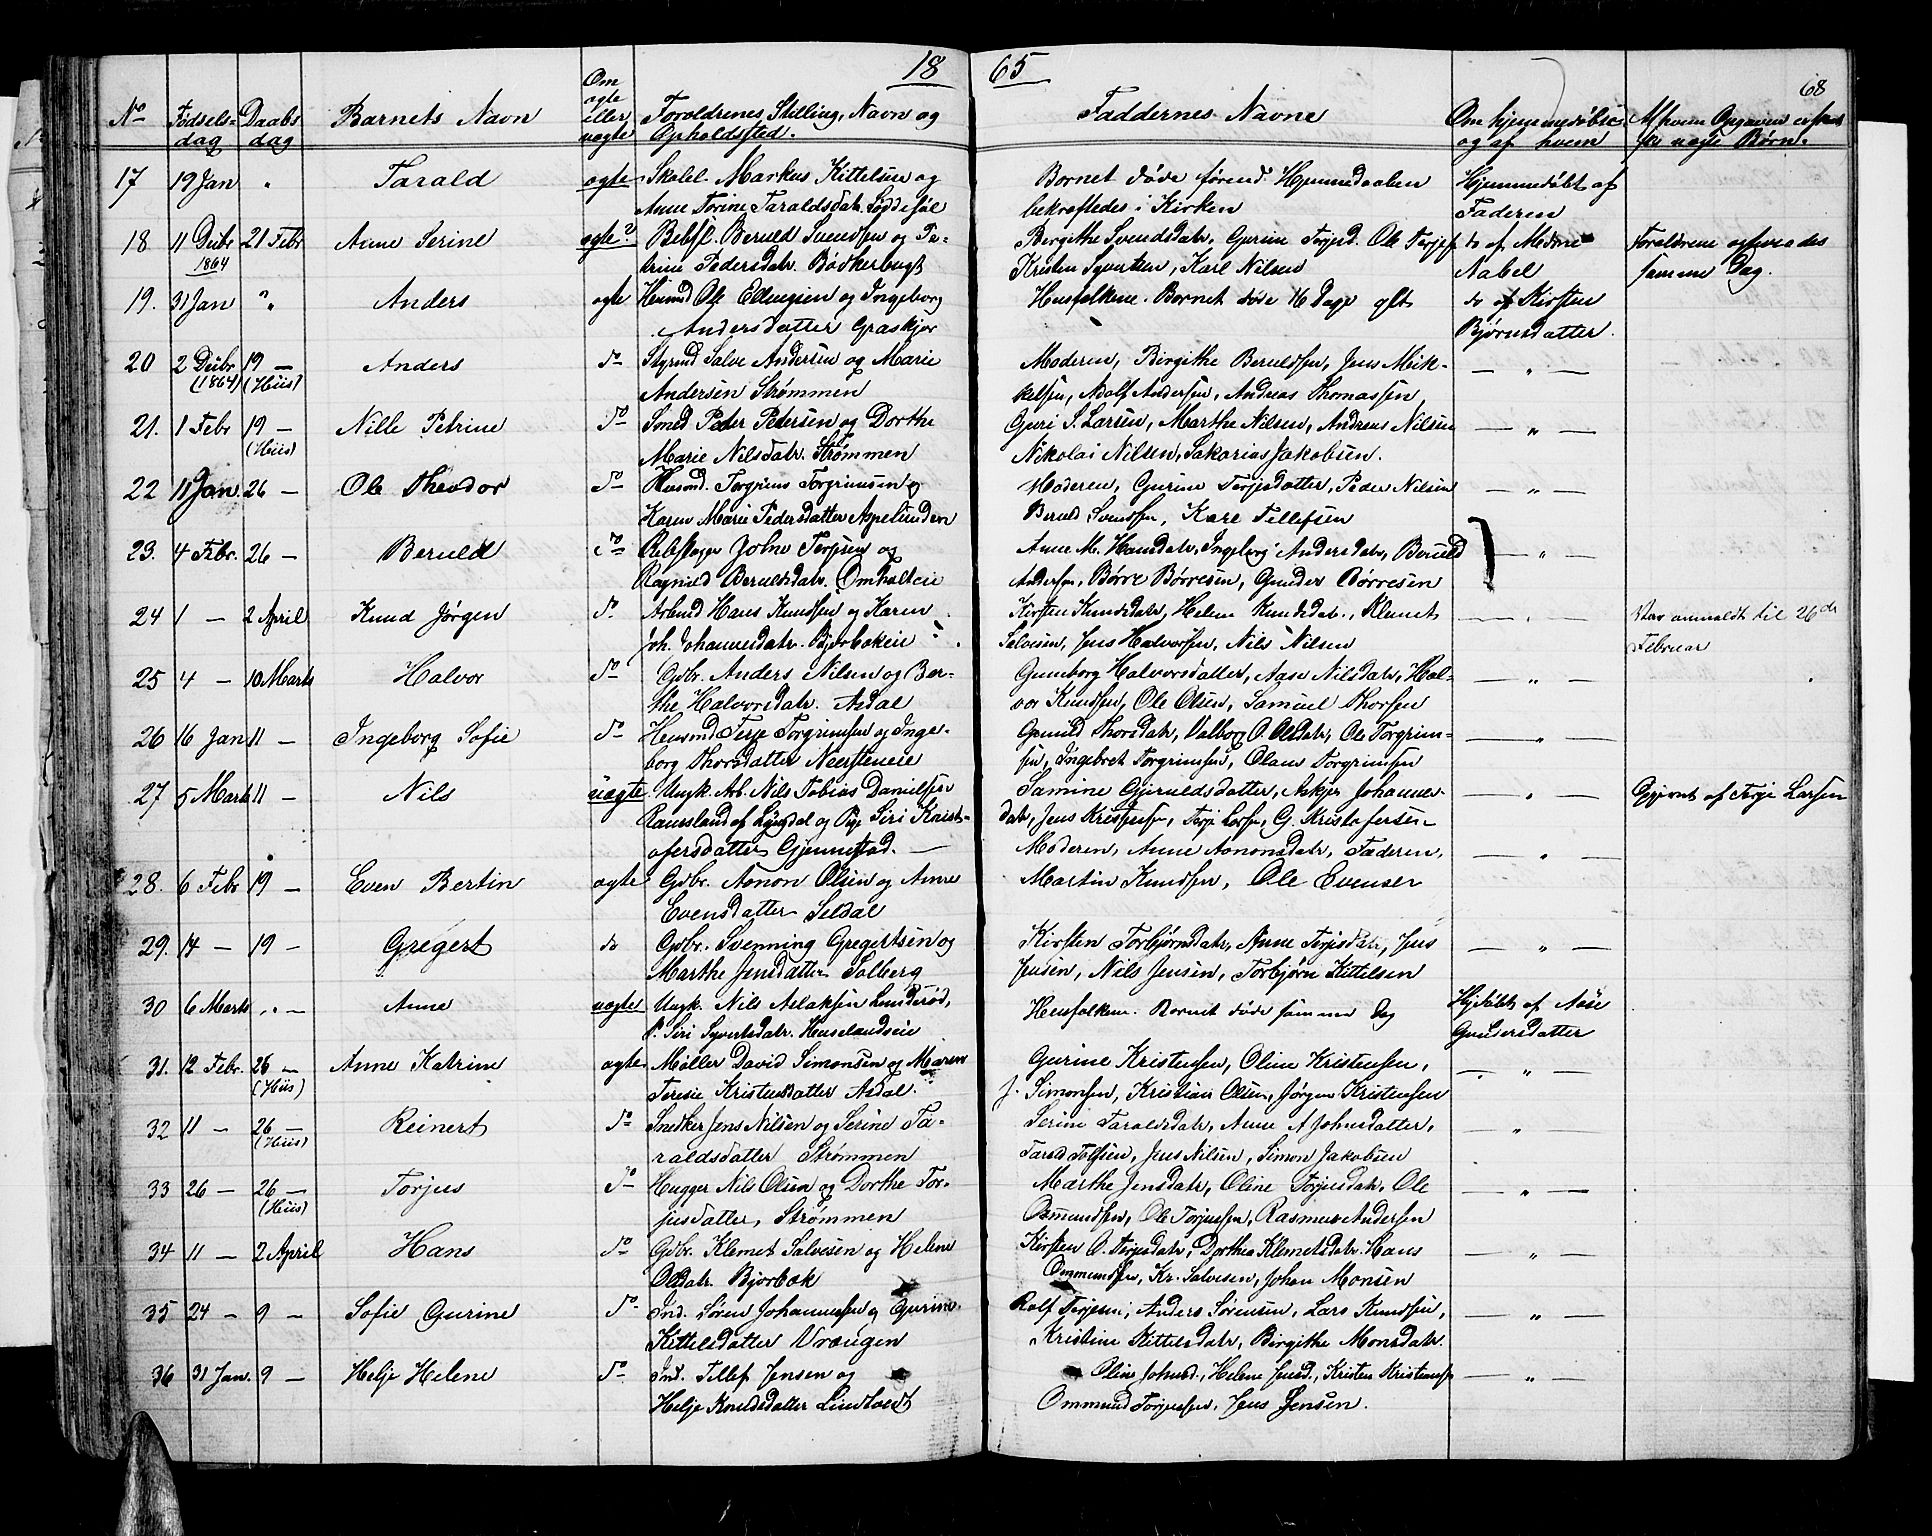 18 65
68
No Fødsels-dag Daabs dag Barnets Navn Om ægte eller uægte Forældrenes Stilling, Navn og Opholdsted. Faddernes Navne Om hjemmedøbt og af hvem Af hvem Opgaven er for uægte Børn.
17 19 Jan " Tarald ægte Skolel. Markus Kittelsen og Barnet døde førend Hjemmedaaben Hjemmedøbt af
Anne Torine Taraldsdatr. bekræftedes i Kirken Faderen
18 11 Debr 21 Febr Anne Serine ægte? Rebsl. Beruld Svendsen og Pe- Birgithe Svendsdatr, Gurine Torjesd. Ole Torjes do af Madme Forældrene ægtevedes
1864 trine Pedersdatr. Bødkerbugt Kristen Syvertsen, Karl Nilsen Nabel samme Dag.
19. 31 Jan " Anders ægte Huusmd Ole Ellingsen og Ingeborg Huusfolkene. Barnet døde 16 Dage glt do af Kirsten
Andersdatter Græskjær Bjørnsdatter.
20 2 Debr 19 — Anders do Styrmd Salve Andersen og Marie Moderen, Birgithe Beruldsen, Jens Mik- — " —
(1864) (Huus) Andersen Strømmen kelsen, Adolf Andersen, Andreas Thomassen
21. 1 Febr 19 — Nille Petrine do Smed Peder Pedersen og Dorthe Guri S. Larsen, Marthe Nilsen, Andreas Nilsen — " —
(Huus) Marie Nilsdatr. Strømmen Nikolai Nilsen, Sakarias Jakobsen.
22 11 Jan. 26 — Ole Theodor do Huusmd. Torgrim Torgrimsen og Moderen, Gurine Torjesdatter, Peder Nilsen — " —
Karen Marie Pedersdatter Beruld Svendsen, Karl Tellefsen
23. 4 Febr. 26 — Beruld do Rebslager John Torjesen og Anne M. Hansdatr, Ingeborg Andersdatr, Beruld — " —
Ragnild Beruldsdatr. Omholteie Andersen, Børre Børresen, Gunder Børresen
24 1 — 2 April Knud Jørgen do Arbmd Hans Knudsen og Karen Kirsten Knudsdatr, Helene Knudsdatr., Klemet — " — Var anmeldt til 26de
Joh. Johannesdatr. Bjorbækeie Salvesen, Jens Halvorsen, Nils Nilsen Februar
25 4 — 10 Marts Halvor do Gdbr. Anders Nilsen og Ber- Gunborg Halvorsdatter, Aase Nilsdatr, Hal- — " —
the Halvorsdatr. Asdal vor Knudsen, Ole Olsen, Samuel Thorsen
26 16 Jan 11 — Ingeborg Sofie do Huusmd Terje Torgrimsen og Inge- Gunild Thorsdatr, Valborg O. Olsdatr, Ole Torgrim- — " —
borg Thorsdatter Neersteneie sen, Ingebret Torgrimsen, Olaus Torgrimsen
27 5 Marts 11 — Nils uægte Ungk. Arb. Nils Tobias Danielsen Samine Gjeruldsdatter, Askjer Johannes- — " — Opgivet af Terje Larsen
Ramsland af Lyngdal og Pige Siri Krist- datr, Jens Kristensen, Terje Larsen, G. Kristofersen —
ofersdatter Gjennestad. — Moderen, Anne Aanonsdatr, Faderen, — " —
28. 6 Febr 19 — Even Bertin ægte Gdbr. Aanon Olsen og Anne Martin Knudsen, Ole Evensen
Evensdatter Seldal
29. 14 — 19 — Gregert do Gdbr. Svenning Gregertsen og Kirsten Torbjørnsdatr, Anne Terjesdatr, Jens — " —
Marthe Jensdatter Solberg Jensen, Nils Jensen, Torbjørn Kittelsen
30 6 Marts " — Anne uægte Ungk. Nils Aslaksen Lunderød, Huusfolkene. Barnet døde samme Dag Hjdøbt af Aase
P. Siri Syvertsdatr. Huuslandseie Gundersdatter
31. 12 Febr. 26 — Anne Katrine ægte Møller David Simonsen og Maren Gurine Kristensen, Oline Kristensen, — " —
(Huus) Teresie Kristensdatter Asdal. J. Simonsen, Kristian Olsen, Jørgen Kristensen
32 11 — 26 — Reinert do Snedker Jens Nilsen og Serine Ta- Serine Taraldsdatr, Anne A Johnsdatter, — " —
(Huus) raldsdatter Strømmen Tarald Tolfsen, Jens Nilsen, Simon Jakobsen
33 26 — 26 — Torjus do Hugger Nils Olsen og Dorthe Tor- Marthe Jensdatr, Oline Torjusdatr. Ole — " —
(Huus) jusdatter, Strømmen Osmundsen, Ole Torjussen, Rasmus Andersen
34 11 — 2 April Hans do Gdbr. Klemet Salvesen og Helene Kirsten O. Torjesdatr, Dorthea Klemetsdatr. Hans — " —
Olsdatr. Bjorbæk Ommundsen, Kr. Salvesen, Johan Monsen
35 24 — 9 — Sofie Gurine do Ind. Søren Johannessen og Gurine Rolf Terjesen, Anders Sørensen, Lars Knudsen, — " —
Kittelsdatter Vrængen Kristine Kittelsdatr, Birgithe Monsdatr.
36 31 Jan. 9 — Helje Helene do Ind. Tellef Jensen og Oline Johnsd., Helene Jensd., Kristen Kristensen — " —
Helje Knudsdatter Lindtveit Ommund Torjussen, Jens Jensen.